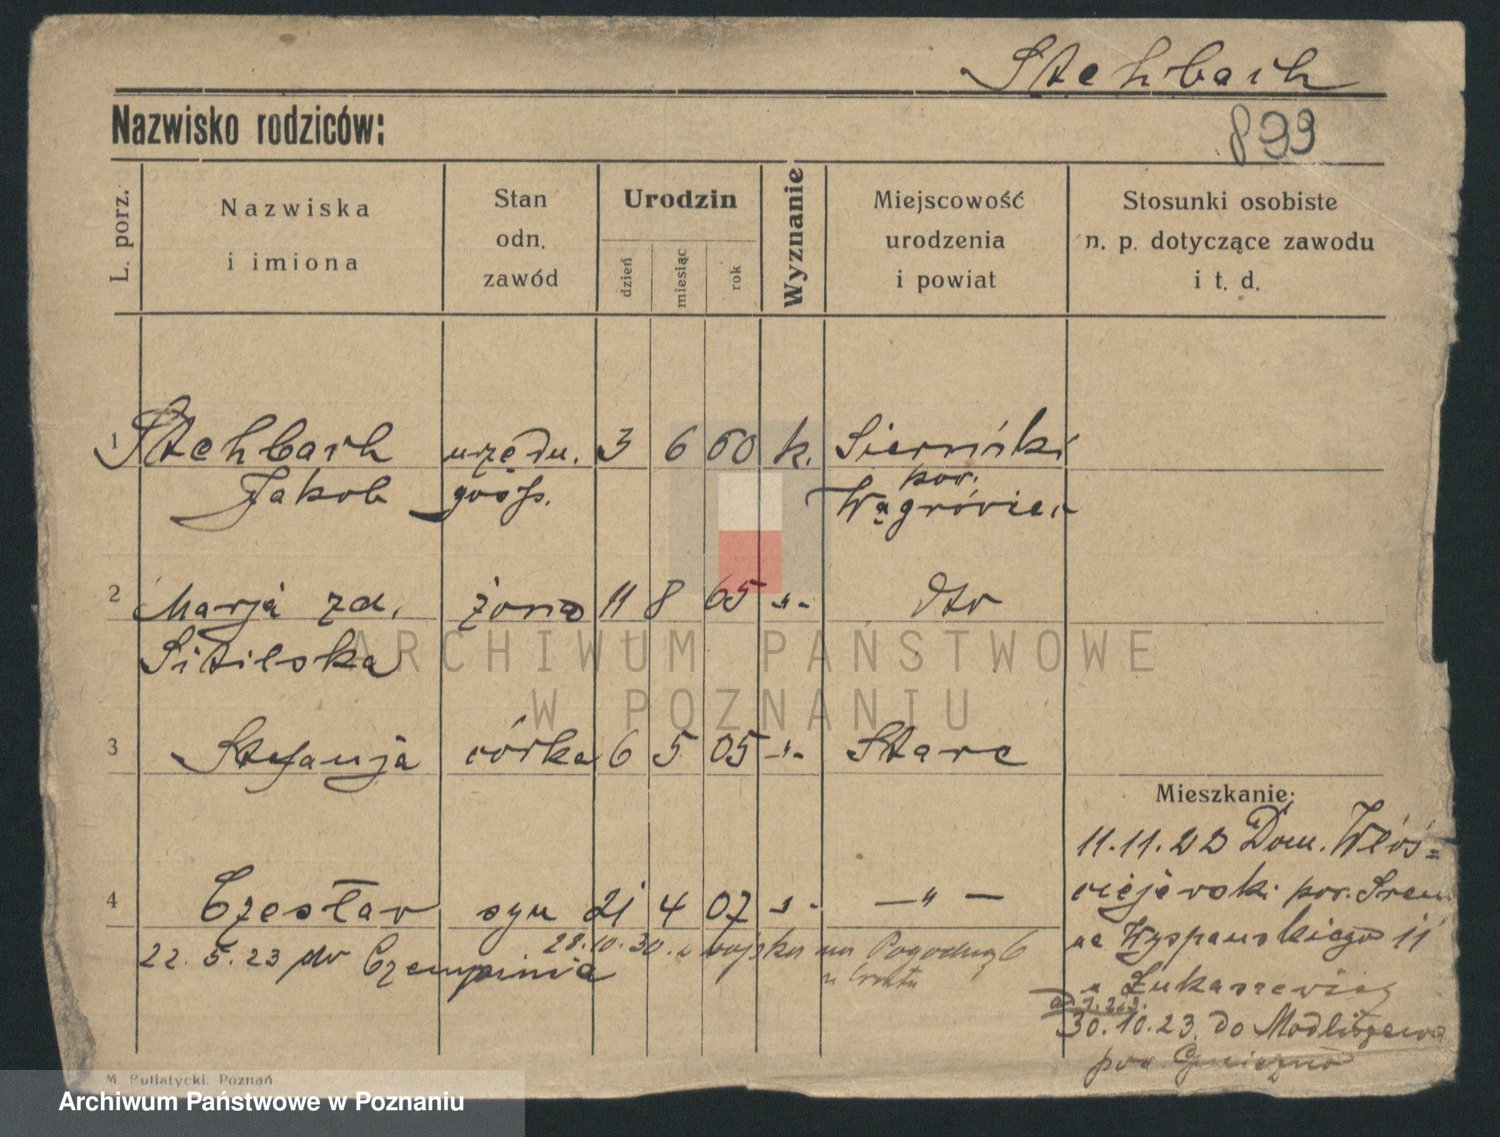 Stehbach
Nazwisko rodziców:
899
L. porz.
Nazwiska
i imiona
Stan
odn.
zawód
Urodzin
dzień
miesiąc
rok
Wyznanie
Miejscowość
urodzenia
i powiat
Stosunki osobiste
n. p. dotyczące zawodu
i t. d.
1 Stehbach urzędn. 3 6 60 k. Sierniki
Jakob gosp. pow.
Wągrówiec
2 Marja zd. żona 11 8 65 -"- dto
3 Stefanja córka 6 5 05 -"- Stare
Mieszkanie:
11.11.22 Dom. Włoś=
ciejewski pow. Śrem
4 Czesław syn 21 4 07 -"- -"-
na Wyspańskiego 11
22.5.23 do Czempinia 28.10.30 z wojska na Pogodną 6
u Łukaszewicz
30.10.23. do Modliszewa
pow. Gniezno
M. Putiatycki. Poznań
ARCHIWUM PAŃSTWOWE
W POZNANIU
Archiwum Państwowe w Poznaniu